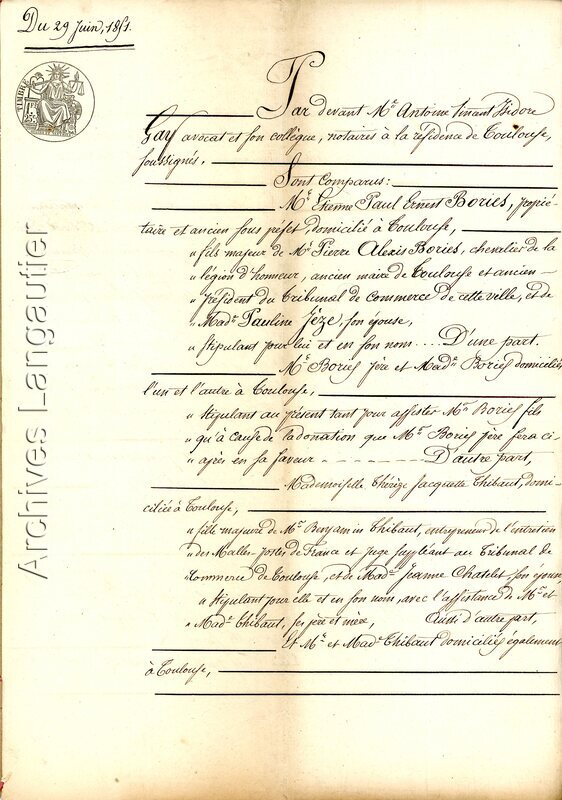 Du 29 Juin, 1851.
TIMBRE
Par devant Me. Antoine Isidore
Gay avocat et son collègue, notaires à la résidence de Toulouse,
soussignés,
Sont comparus:
Mr. Etienne Paul Ernest Bories, proprié-
taire et ancien sous préfet, domicilié à Toulouse,
" fils majeur de Mr. Pierre Alexis Bories, chevalier de la
" légion d'honneur, ancien maire de Toulouse et ancien-
" Président du Tribunal de Commerce de cette ville, et de
" Made. Pauline Jèze, son épouse,
" Stipulant pour lui et en son nom .... D'une part.
Mr. Bories père et Made. Bories domiciliés
l'un et l'autre à Toulouse,
" Stipulant au présent tant pour assister Mr. Bories fils
" qu'à cause de la donation que Mr. Bories père fera ci-
" après en sa faveur - - - - - - - - D'autre part,
Mademoiselle Thérèze Jacquette Thibaut, domi-
ciliée à Toulouse,
" fille majeure de Mr. Benjamin Thibaut, entrepreneur de l'entretien
" des Malles-postes de France et Juge Suppléant au Tribunal de
" Commerce de Toulouse, et de Made. Jeanne Chatelet, son épouse
" Stipulant pour elle et en son nom, avec l'assistance de Mr. et
" Made. Thibaut, ses père et mère, Aussi d'autre part,
Et Mr. et Made. Thibaut domiciliés également
à Toulouse,
Archives Langautier